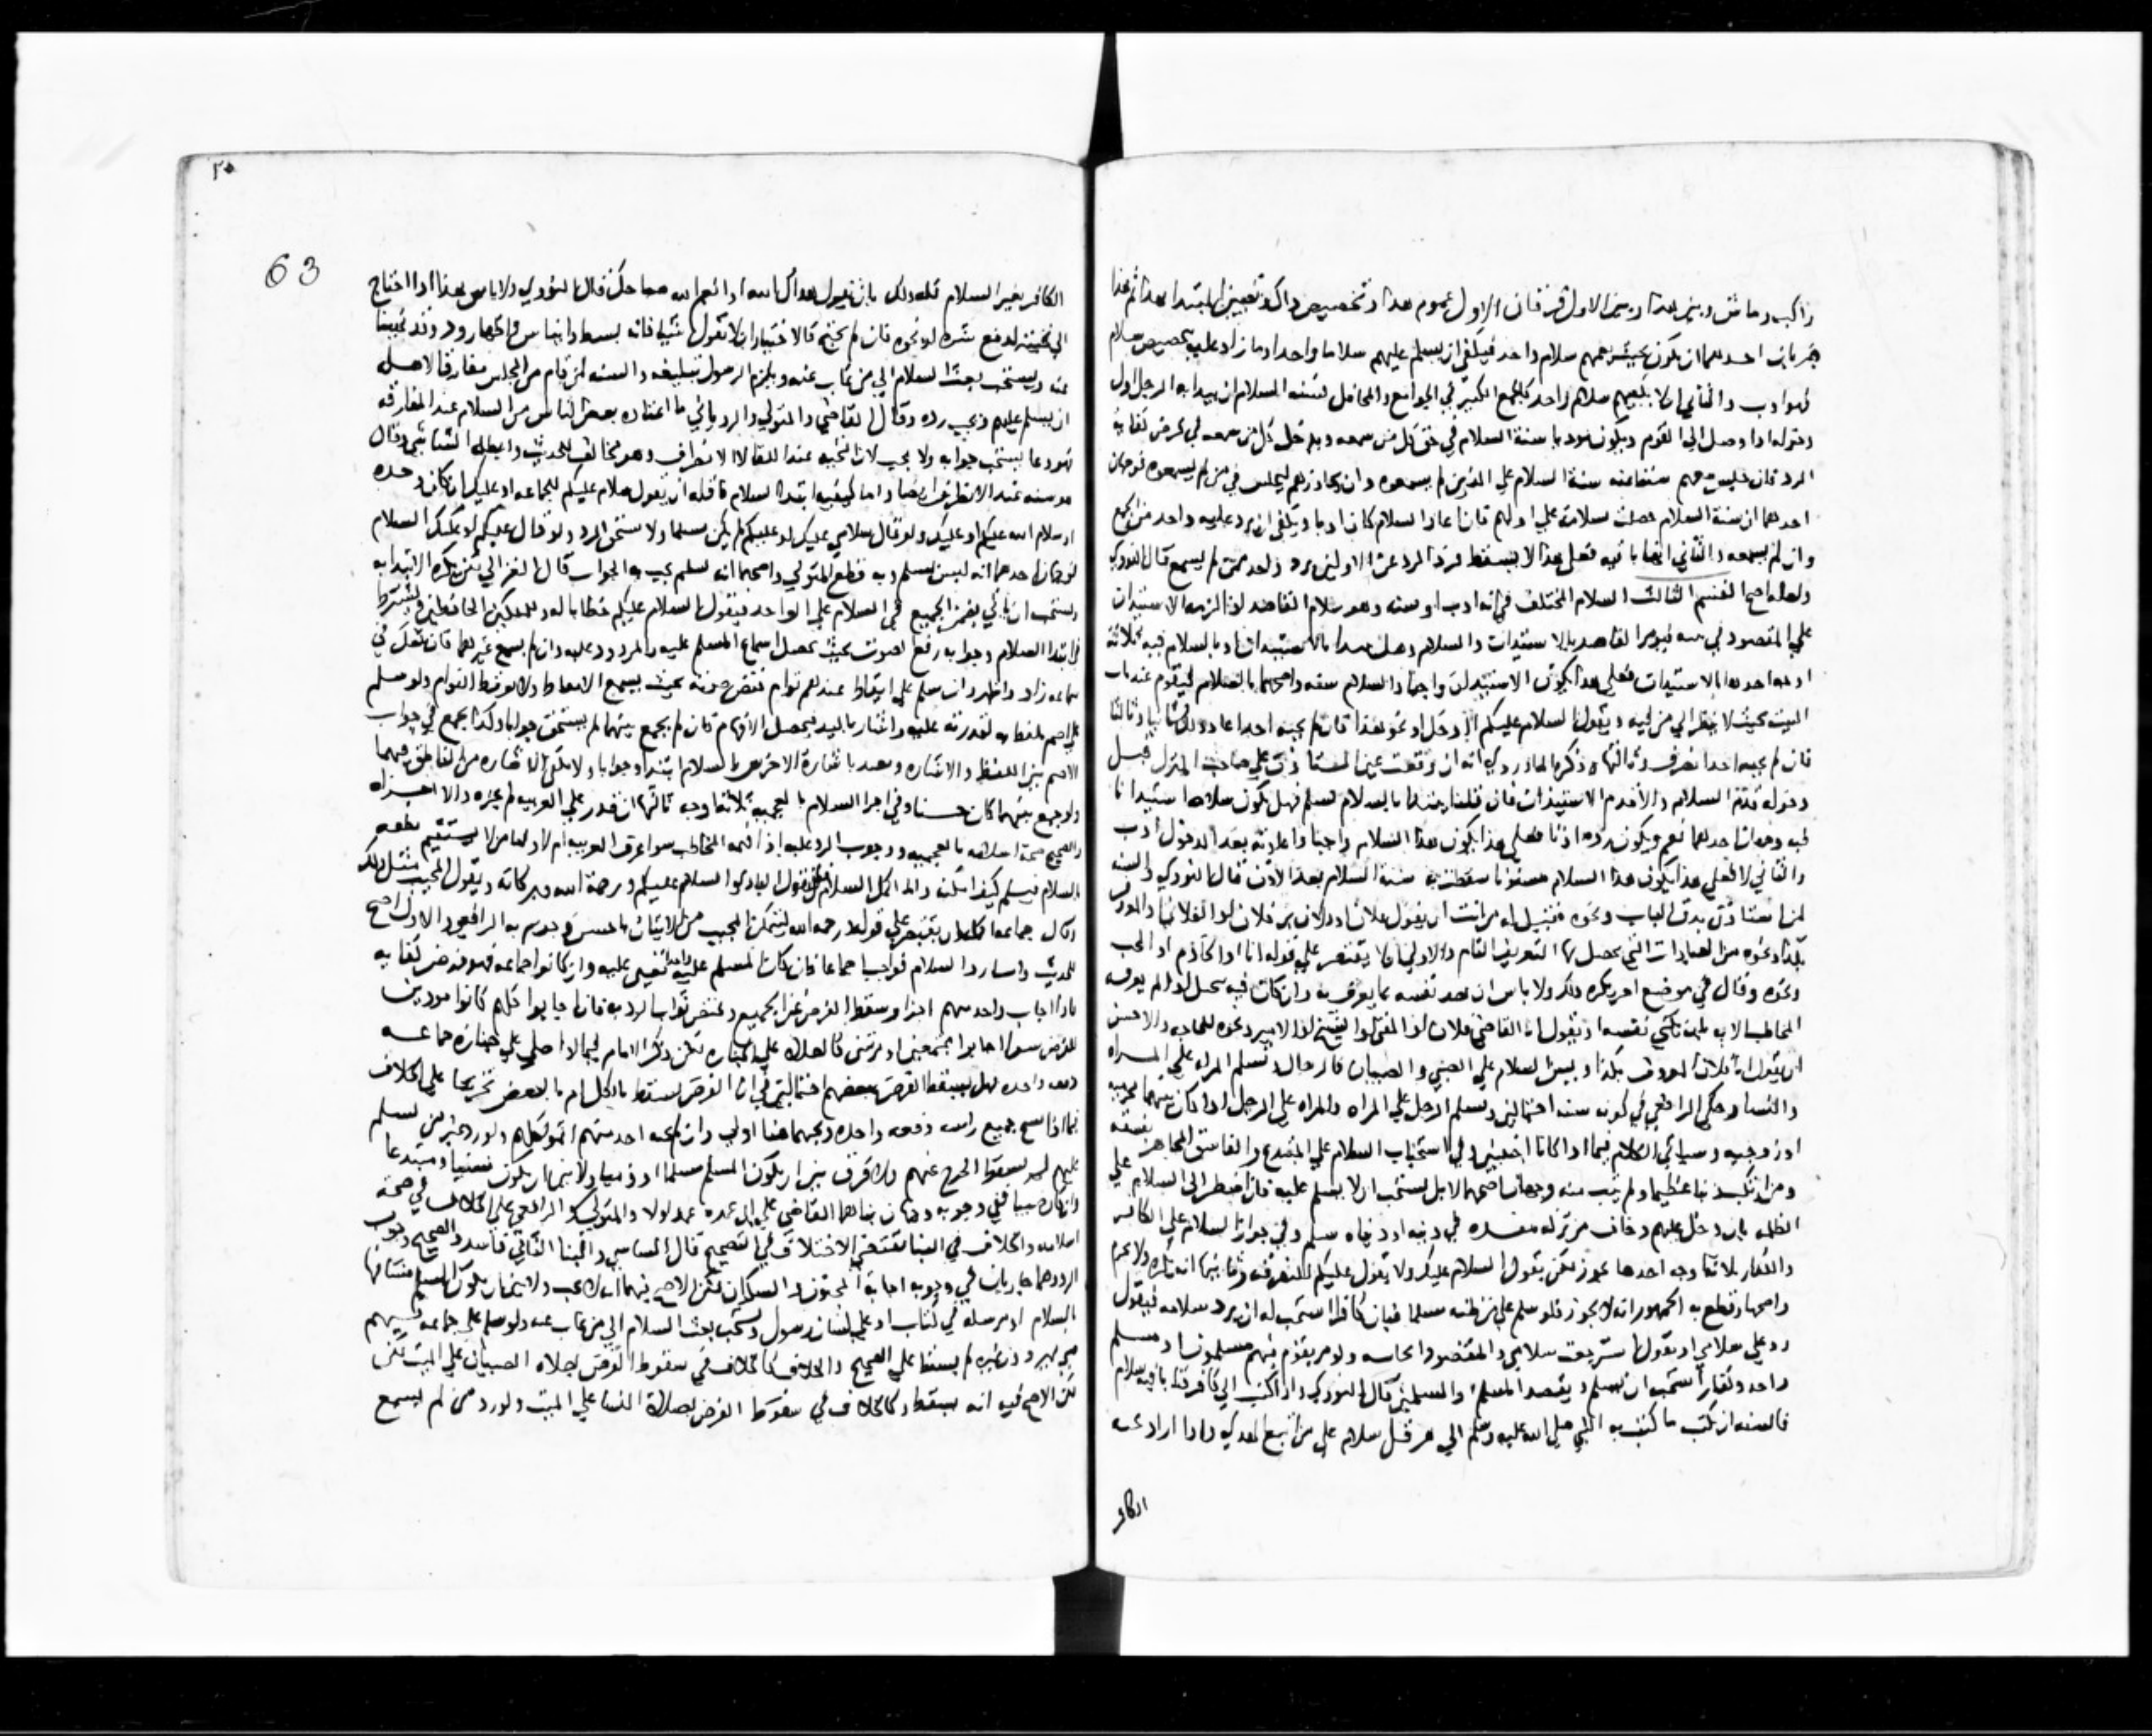 راكب وماش وبين هذا وبين الاول فرقان الاول عموم هذا وتخصيص ذاك وتعيين المبتدا بهذا ثم هذا
ضربان احدهما ان يكون بحيث يعمهم سلام واحد فيكفي ان يسلم عليهم سلاما واحدا وما زاد عليه بتخصيص سلام
فهو ادب والثاني ان لا يعمهم سلام واحد كالجمع الكبير في الجوامع والمحافل لسنة السلام ان يبدا به الرجل اول
دخوله اذا وصل الي القوم ويكون موديا سنة السلام في حق كل من سمعه ويدخل كل من سمعه في فرض كفاية
الرد فان جلس معهم سقط عنه سنة السلام علي الذين لم يسمعوه وان تجاوزهم ليجلس في من لم يسمعوه فوجهان
احدهما ان سنة السلام حصلت بسلامه علي اولهم فان اعاد السلام كان ادبا ويكفي ان يرد عليه واحد منهم
وان لم يسمعه والثاني انها باقية فعلي هذا لا يسقط فرد الرد عن الاولين برد واحد ممن لم يسمع قال النووي
ولعله اصح القسم الثالث السلام المختلف في انه ادب او سنة وهو سلام القاصد اذا لزمه الاستيذان
علي المقصود في بيته فيومر القاصد بالاستيذان والسلام وهل يبدا بالاستيذان او بالسلام فيه ثلاثة
اوجه احدها بالاستيذان فعلي هذا يكون الاستيذان واجبا والسلام سنة واصحها بالسلام فيقوم عند باب
البيت بحيث لا ينظر الي من فيه ويقول السلام عليكم أادخل او نحو هذا فان لم يجبه احد اعاد ذلك ثانيا وثالثا
فان لم يجبه احد انصرف وثالثها وذكره الماوردي انه ان وقعت عين المستاذن علي صاحب المنزل قبل
دخوله قدم السلام والا قدم الاستيذان فان قلنا يبتدا بالسلام فسلم فهل يكون سلامه استيذانا
فيه وجهان احدهما نعم ويكون رده اذنا فعلي هذا يكون هذا السلام واجبا واعادته بعد الدخول ادب
والثاني لا فعلي هذا يكون هذا السلام مسنونا سقط به سنة السلام بعد الاذن قال النووي والسنة
لمن استاذن بدق الباب ونحوه فقيل له من انت ان يقول فلان او فلان بن فلان او الفلاني او المعروف
بكذا ونحوه من العبارات التي يحصل بها التعريف التام والاولي ان لا يقتصر علي قوله انا او الخادم او المحب
ونحوه وقال في موضع اخر يكره ذلك ولا باس ان يصف نفسه بما يعرف به وان كان فيه تبجيل له اذا لم يعرفه
المخاطب الا به بان يكني نفسه او يقول انا القاضي فلان او المفتي او الشيخ او الامير ونحوه للحاجة والاحسن
ان يقول انا فلان المعروف بكذا ويسن السلام علي الصبي والصبيان
والنسا وحكي الرافعي في كونه سنة احتمالين ويسلم الرجل علي المراة والمراة علي الرجل اذا كان بينهما محرمية
او زوجية وسياتي الكلام فيما اذا كانا اجنبيين وفي استحباب السلام علي المبتدع والفاسق المجاهر بفسقه
ومن ارتكب ذنبا عظيما ولم يتب منه وجهان اصحهما لا بل يستحب ان لا يسلم عليه فان اضطر الي السلام علي
الظلمة بان دخل عليهم وخاف من تركه مفسدة في دينه او دنياه سلم وفي جواز السلام علي الكافر
والكفار ثلاثة اوجه احدها يجوز لكن يقول السلام عليك ولا يقول عليكم للتفرقة وثانيها انه يكره ولا يحرم
واصحها وقطع به الجمهور انه لا يجوز فلو سلم علي من ظنه مسلما فبان كافرا استحب له ان يرد سلامه فيقول
رد علي سلامي او يقول استرجعت سلامي والمقصود ايحاشه ولو مر بقوم فيهم مسلمون او مسلم
واحد وكفار استحب ان يسلم ويقصد المسلم والمسلمين قال النووي واذا كتب الي كافر كتابا فيه سلام
فالسنة ان يكتب ما كتب به النبي صلي الله عليه وسلم الي هرقل سلام علي من اتبع الهدي واذا اراد تحية
الكافر
٢٠
63
الكافر بغير السلام فله ذلك بان يقول هداك الله او انعم الله صباحك قال النووي ولا باس بهذا اذا احتاج
الي تحيته لدفع شره او نحوه فان لم يحتج فالاختيار ان لا يقول شيا فانه بسط وايناس واظهار ود وقد نهينا
عنه ويستحب بعث السلام الي من غاب عنه ويلزم الرسول تبليغه والسنة لمن قام من المجلس مفارقا لاهله
ان يسلم عليهم ويجب رده وقال القاضي والمتولي والروياني ما اعتاده بعض الناس من السلام عند المفارقة
فهو دعا يستحب جوابه ولا يجب لان التحية عند اللقا لا الانصراف وهو مخالف للحديث وابطله الشاشي وقال
هو سنة عند الانصراف ايضا واما كيفية ابتدا السلام فاقله ان يقول سلام عليكم للجماعة او عليك ان كان وحده
او سلام الله عليكم او عليك ولو قال سلامي عليك او عليكم لم يكن مسلما ولا يستحق الرد ولو قال عليكم او عليك السلام
فوجهان احدهما انه ليس بسلام وبه قطع المتولي واصحهما انه سلام يجب به الجواب قال الغزالي لكن يكره الابتدا به
ويستحب ان ياتي بضمير الجميع في السلام علي الواحد فيقول السلام عليكم خطابا له وللملكين الحافظين ويشترط
في ابتدا السلام وجوابه رفع الصوت بحيث يحصل اسماع المسلم عليه والمردود عليه وان لم يسمع غيرهما فان شك في
سماعه زاد واظهر وان سلم علي ايقاظ عندهم نوام خفض صوته بحيث يسمع الايقاظ ولا يوقظ النوام ولو سلم
علي اصم بلفظه لقدرته عليه واشار باليد ليحصل الافهام فان لم يجمع بينهما لم يستحق جوابا وكذا يجمع في جواب
الاصم بين اللفظ والاشارة ويعتد باشارة الاخرس بالسلام ابتدا وجوابا ولا يكفي الاشارة من الناطق فيهما
ولو جمع بينهما كان حسنا وفي اجزا السلام بالعجمية ثلاثة اوجه ثالثها ان قدر علي العربية لم يجزه والا اجزاه
والصحيح صحة سلامه بالعجمية ووجوب الرد عليه اذا فهمه المخاطب سوا عرف العربية ام لا واما من لا يستقيم نطقه
بالسلام فيسلم كيف امكنه واما اكمل السلام فان يقول البادي السلام عليكم ورحمة الله وبركاته ويقول المجيب مثل ذلك
وقال جماعة ان يقتصر علي قوله ورحمة الله ليتمكن المجيب من الاتيان باحسن وجزم به الرافعي والاول اصح
للحديث واما رد السلام فواجب اجماعا فان كان المسلم عليه واحدا تعين عليه وان كانوا جماعة فهو فرض كفاية
فاذا اجاب واحد منهم اجزا وسقط الفرض عن الجميع ويختص بثواب الرد به فان اجابوا كلهم كانوا مودين
للفرض سوا اجابوا مجتمعين او مرتبين كالصلاة علي الجنازة لكن ذكر الامام فيما لو صلي علي جنازة جماعة
دفعة واحدة فهل يسقط الفرض ببعضهم احتمالين في ان الفرض يسقط بالكل ام بالبعض تخريجا علي الخلاف
فيما اذا مسح جميع راسه دفعة واحدة وان لم يجبه احد منهم اثموا كلهم ولو رد غير من سلم
عليهم لم يسقط الحرج عنهم ولا فرق بين ان يكون المسلم مسلما او ذميا ولا بين ان يكون سنيا او مبتدعا
وان كان صبيا ففي وجوبه وجهان بناهما القاضي علي ان عمده عمد اولا والمتولي والرافعي علي الخلاف في صحة
اسلامه والخلاف في البنا يقتضي الاختلاف في التصحيح قال الشاشي والبنا الثاني فاسد والصحيح وجوب
الرد وهما جاريان في وجوب اجابة المجنون والسكران لكن الاصح فيهما انه لا يجب ولا بين ان يكون المسلم مشافها
بالسلام او مرسله في كتاب او علي لسان رسول ويستحب بعث السلام الي من غاب عنه ولو سلم علي جماعة فيهم
صبي فرد دون غيره لم يسقط علي الصحيح والخلاف كالخلاف في سقوط الفرض بصلاة الصبيان علي الميت لكن
لكن الاصح فيه انه يسقط وكالخلاف في سقوط الفرض بصلاة النسا علي الميت ولو رد من لم يسمع